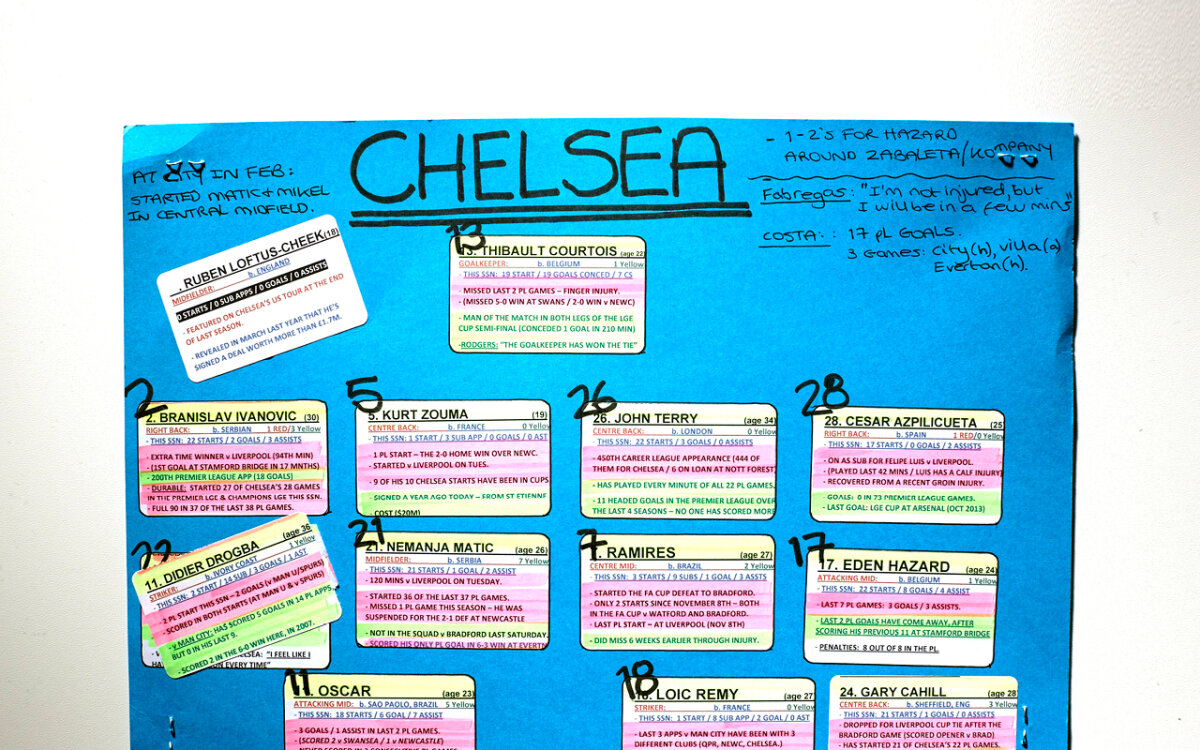 CHELSEA
AT CITY IN FEB:
STARTED MATIC & MIKEL
IN CENTRAL MIDFIELD.
- 1-2's FOR HAZARD
AROUND ZABALETA/KOMPANY
Fabregas: "I'm not injured, but
I will be in a few mins"
COSTA: 17 PL GOALS.
3 Games: City(h), Villa(a)
Everton(h).
. RUBEN LOFTUS-CHEEK(18)
MIDFIELDER: b. ENGLAND
0 STARTS / 0 SUB APPS / 0 GOALS / 0 ASSISTS
- FEATURED ON CHELSEA'S US TOUR AT THE END
OF LAST SEASON.
- REVEALED IN MARCH LAST YEAR THAT HE'S
SIGNED A DEAL WORTH MORE THAN £1.7M.
13
13. THIBAULT COURTOIS (age 22)
GOALKEEPER: b. BELGIUM 1 Yellow
- THIS SSN: 19 START / 19 GOALS CONCED / 7 CS
- MISSED LAST 2 PL GAMES – FINGER INJURY.
- (MISSED 5-0 WIN AT SWANS / 2-0 WIN v NEWC)
- MAN OF THE MATCH IN BOTH LEGS OF THE LGE
CUP SEMI-FINAL (CONCEDED 1 GOAL IN 210 MIN)
-RODGERS: "THE GOALKEEPER HAS WON THE TIE"
2
2. BRANISLAV IVANOVIC (30)
RIGHT BACK: b. SERBIAN 1 RED/3 Yellow
- THIS SSN: 22 STARTS / 2 GOALS / 3 ASSISTS
- EXTRA TIME WINNER v LIVERPOOL (94TH MIN)
- (1ST GOAL AT STAMFORD BRIDGE IN 17 MNTHS)
- 200TH PREMIER LEAGUE APP (18 GOALS)
- DURABLE: STARTED 27 OF CHELSEA'S 28 GAMES
IN THE PREMIER LGE & CHAMPIONS LGE THIS SSN.
- FULL 90 IN 37 OF THE LAST 38 PL GAMES.
5
5. KURT ZOUMA (19)
CENTRE BACK: b. FRANCE 0 Yellow
- THIS SSN: 1 START / 3 SUB APP / 0 GOALS / 0 AST
- 1 PL START – THE 2-0 HOME WIN OVER NEWC.
- STARTED v LIVERPOOL ON TUES.
- 9 OF HIS 10 CHELSEA STARTS HAVE BEEN IN CUPS
- SIGNED A YEAR AGO TODAY – FROM ST ETIENNE
- COST ($20M)
26
26. JOHN TERRY (age 34)
CENTRE BACK: b. LONDON 0 Yellow
- THIS SSN: 22 STARTS / 3 GOALS / 0 ASSISTS
- 450TH CAREER LEAGUE APPEARANCE (444 OF
THEM FOR CHELSEA / 6 ON LOAN AT NOTT FOREST)
- HAS PLAYED EVERY MINUTE OF ALL 22 PL GAMES.
- 11 HEADED GOALS IN THE PREMIER LEAGUE OVER
THE LAST 4 SEASONS – NO ONE HAS SCORED MORE
28
28. CESAR AZPILICUETA (25)
RIGHT BACK: b. SPAIN 1 RED/0 Yellow
- THIS SSN: 17 STARTS / 0 GOALS / 2 ASSISTS
- ON AS SUB FOR FELIPE LUIS v LIVERPOOL.
- (PLAYED LAST 42 MINS / LUIS HAS A CALF INJURY)
- RECOVERED FROM A RECENT GROIN INJURY.
- GOALS: 0 IN 73 PREMIER LEAGUE GAMES.
- LAST GOAL: LGE CUP AT ARSENAL (OCT 2013)
22
11. DIDIER DROGBA (age 36
STRIKER: b. IVORY COAST 1 Yellow
- THIS SSN: 2 START / 14 SUB / 3 GOALS / 1 AST
- 2 PL START THIS SSN – 2 GOALS (v MAN U/SPURS)
- SCORED IN BOTH STARTS (AT MAN U & v SPURS)
- v MAN CITY: HAS SCORED 5 GOALS IN 14 PL APPS.
BUT 0 IN HIS LAST 9.
- SCORED 2 IN THE 6-0 WIN HERE, IN 2007.
ELSEA: "I FEEL LIKE I
ON EVERY TIME"
21
21. NEMANJA MATIC (age 26)
MIDFIELDER: b. SERBIA 7 Yellow
- THIS SSN: 21 STARTS / 1 GOAL / 2 ASSIST
- 120 MINS v LIVERPOOL ON TUESDAY.
- STARTED 36 OF THE LAST 37 PL GAMES.
- MISSED 1 PL GAME THIS SEASON – HE WAS
SUSPENDED FOR THE 2-1 DEF AT NEWCASTLE
- NOT IN THE SQUAD v BRADFORD LAST SATURDAY.
- SCORED HIS ONLY PL GOAL IN 6-3 WIN AT EVERTN
7
7. RAMIRES (age 27)
CENTRE MID: b. BRAZIL 2 Yellow
- THIS SSN: 3 STARTS / 9 SUBS / 1 GOAL / 3 ASSTS
- STARTED THE FA CUP DEFEAT TO BRADFORD.
- ONLY 2 STARTS SINCE NOVEMBER 8TH – BOTH
IN THE FA CUP v WATFORD AND BRADFORD.
- LAST PL START – AT LIVERPOOL (NOV 8TH)
- DID MISS 6 WEEKS EARLIER THROUGH INJURY.
17
17. EDEN HAZARD (age 24)
ATTACKING MID: b. BELGIUM 1 Yellow
- THIS SSN: 22 STARTS / 8 GOALS / 4 ASSIST
- LAST 7 PL GAMES: 3 GOALS / 3 ASSISTS.
- LAST 2 PL GOALS HAVE COME AWAY, AFTER
SCORING HIS PREVIOUS 11 AT STAMFORD BRIDGE
- PENALTIES: 8 OUT OF 8 IN THE PL.
11
11. OSCAR (age 23)
ATTACKING MID: b. SAO PAOLO, BRAZIL 5 Yellow
- THIS SSN: 18 STARTS / 6 GOAL / 7 ASSIST
- 3 GOALS / 1 ASSIST IN LAST 2 PL GAMES.
- (SCORED 2 v SWANSEA / 1 v NEWCASTLE)
18
18. LOIC REMY (age 27)
STRIKER: b. FRANCE 0 Yellow
- THIS SSN: 1 START / 8 SUB APP / 2 GOAL / 0 AST
- LAST 3 APPS v MAN CITY HAVE BEEN WITH 3
DIFFERENT CLUBS (QPR, NEWC, CHELSEA.)
24. GARY CAHILL (age 28)
CENTRE BACK: b. SHEFFIELD, ENG 3 Yellow
- THIS SSN: 21 STARTS / 0 GOALS / 0 ASSISTS
- DROPPED FOR LIVERPOOL CUP TIE AFTER THE
BRADFORD GAME (SCORED OPENER v BRAD)
- HAS STARTED 21 OF CHELSEA'S 22 PL GAMES.